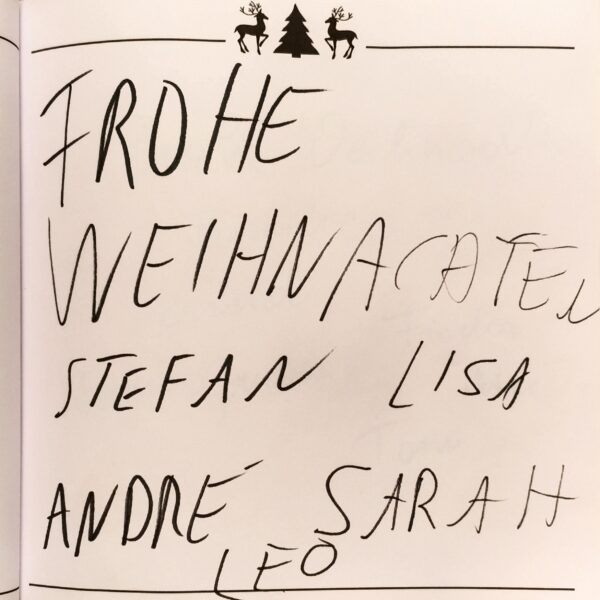 FROHE
WEIHNACATEN
STEFAN LISA
ANDRÉ SARAH
LEO